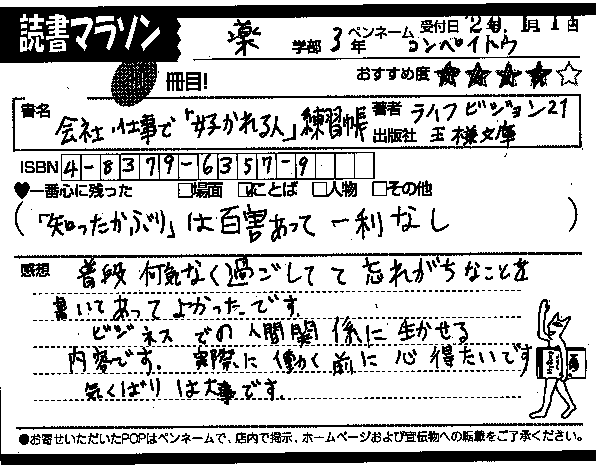 読書マラソン
薬 学部 3年 ペンネーム コンペイトウ
受付日 1月1日
冊目!
おすすめ度 ★★★★☆
書名 会社・仕事で「好かれる人」練習帳
著者 ライフビジョン21
出版社 王様文庫
ISBN 4-8379-6357-9
♥一番心に残った □場面 □ことば □人物 □その他
(「知ったかぶり」は百害あって一利なし)
感想 普段何気なく過ごしてて忘れがちなことを
書いてあってよかったです。
ビジネスでの人間関係に生かせる
内容です。実際に働く前に心得たいです
気くばりは大事です。
●お寄せいただいたPOPはペンネームで、店内で掲示、ホームページおよび宣伝物への転載をご了承ください。